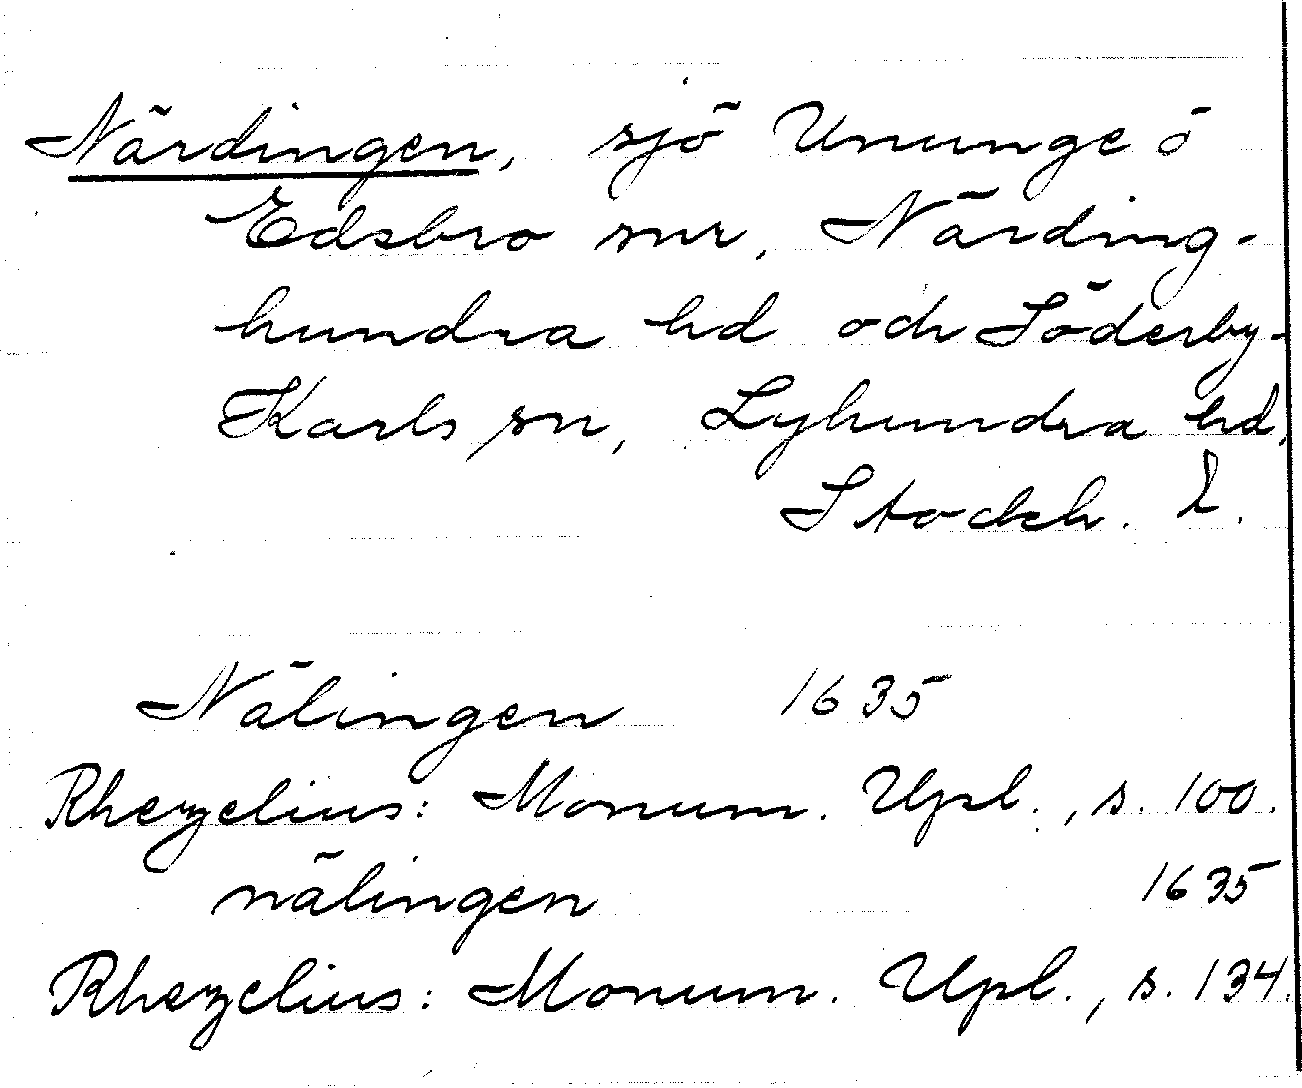 Närdingen, sjö Ununge o
Edsbro snr, Närding-
hundra hd och Söderby-
Karls sn, Lyhundra hd,
Stockh. l.
Nälingen 1635
Rhezelius: Monum. Upl., s. 100.
nälingen 1635
Rhezelius: Monum. Upl., s. 134.